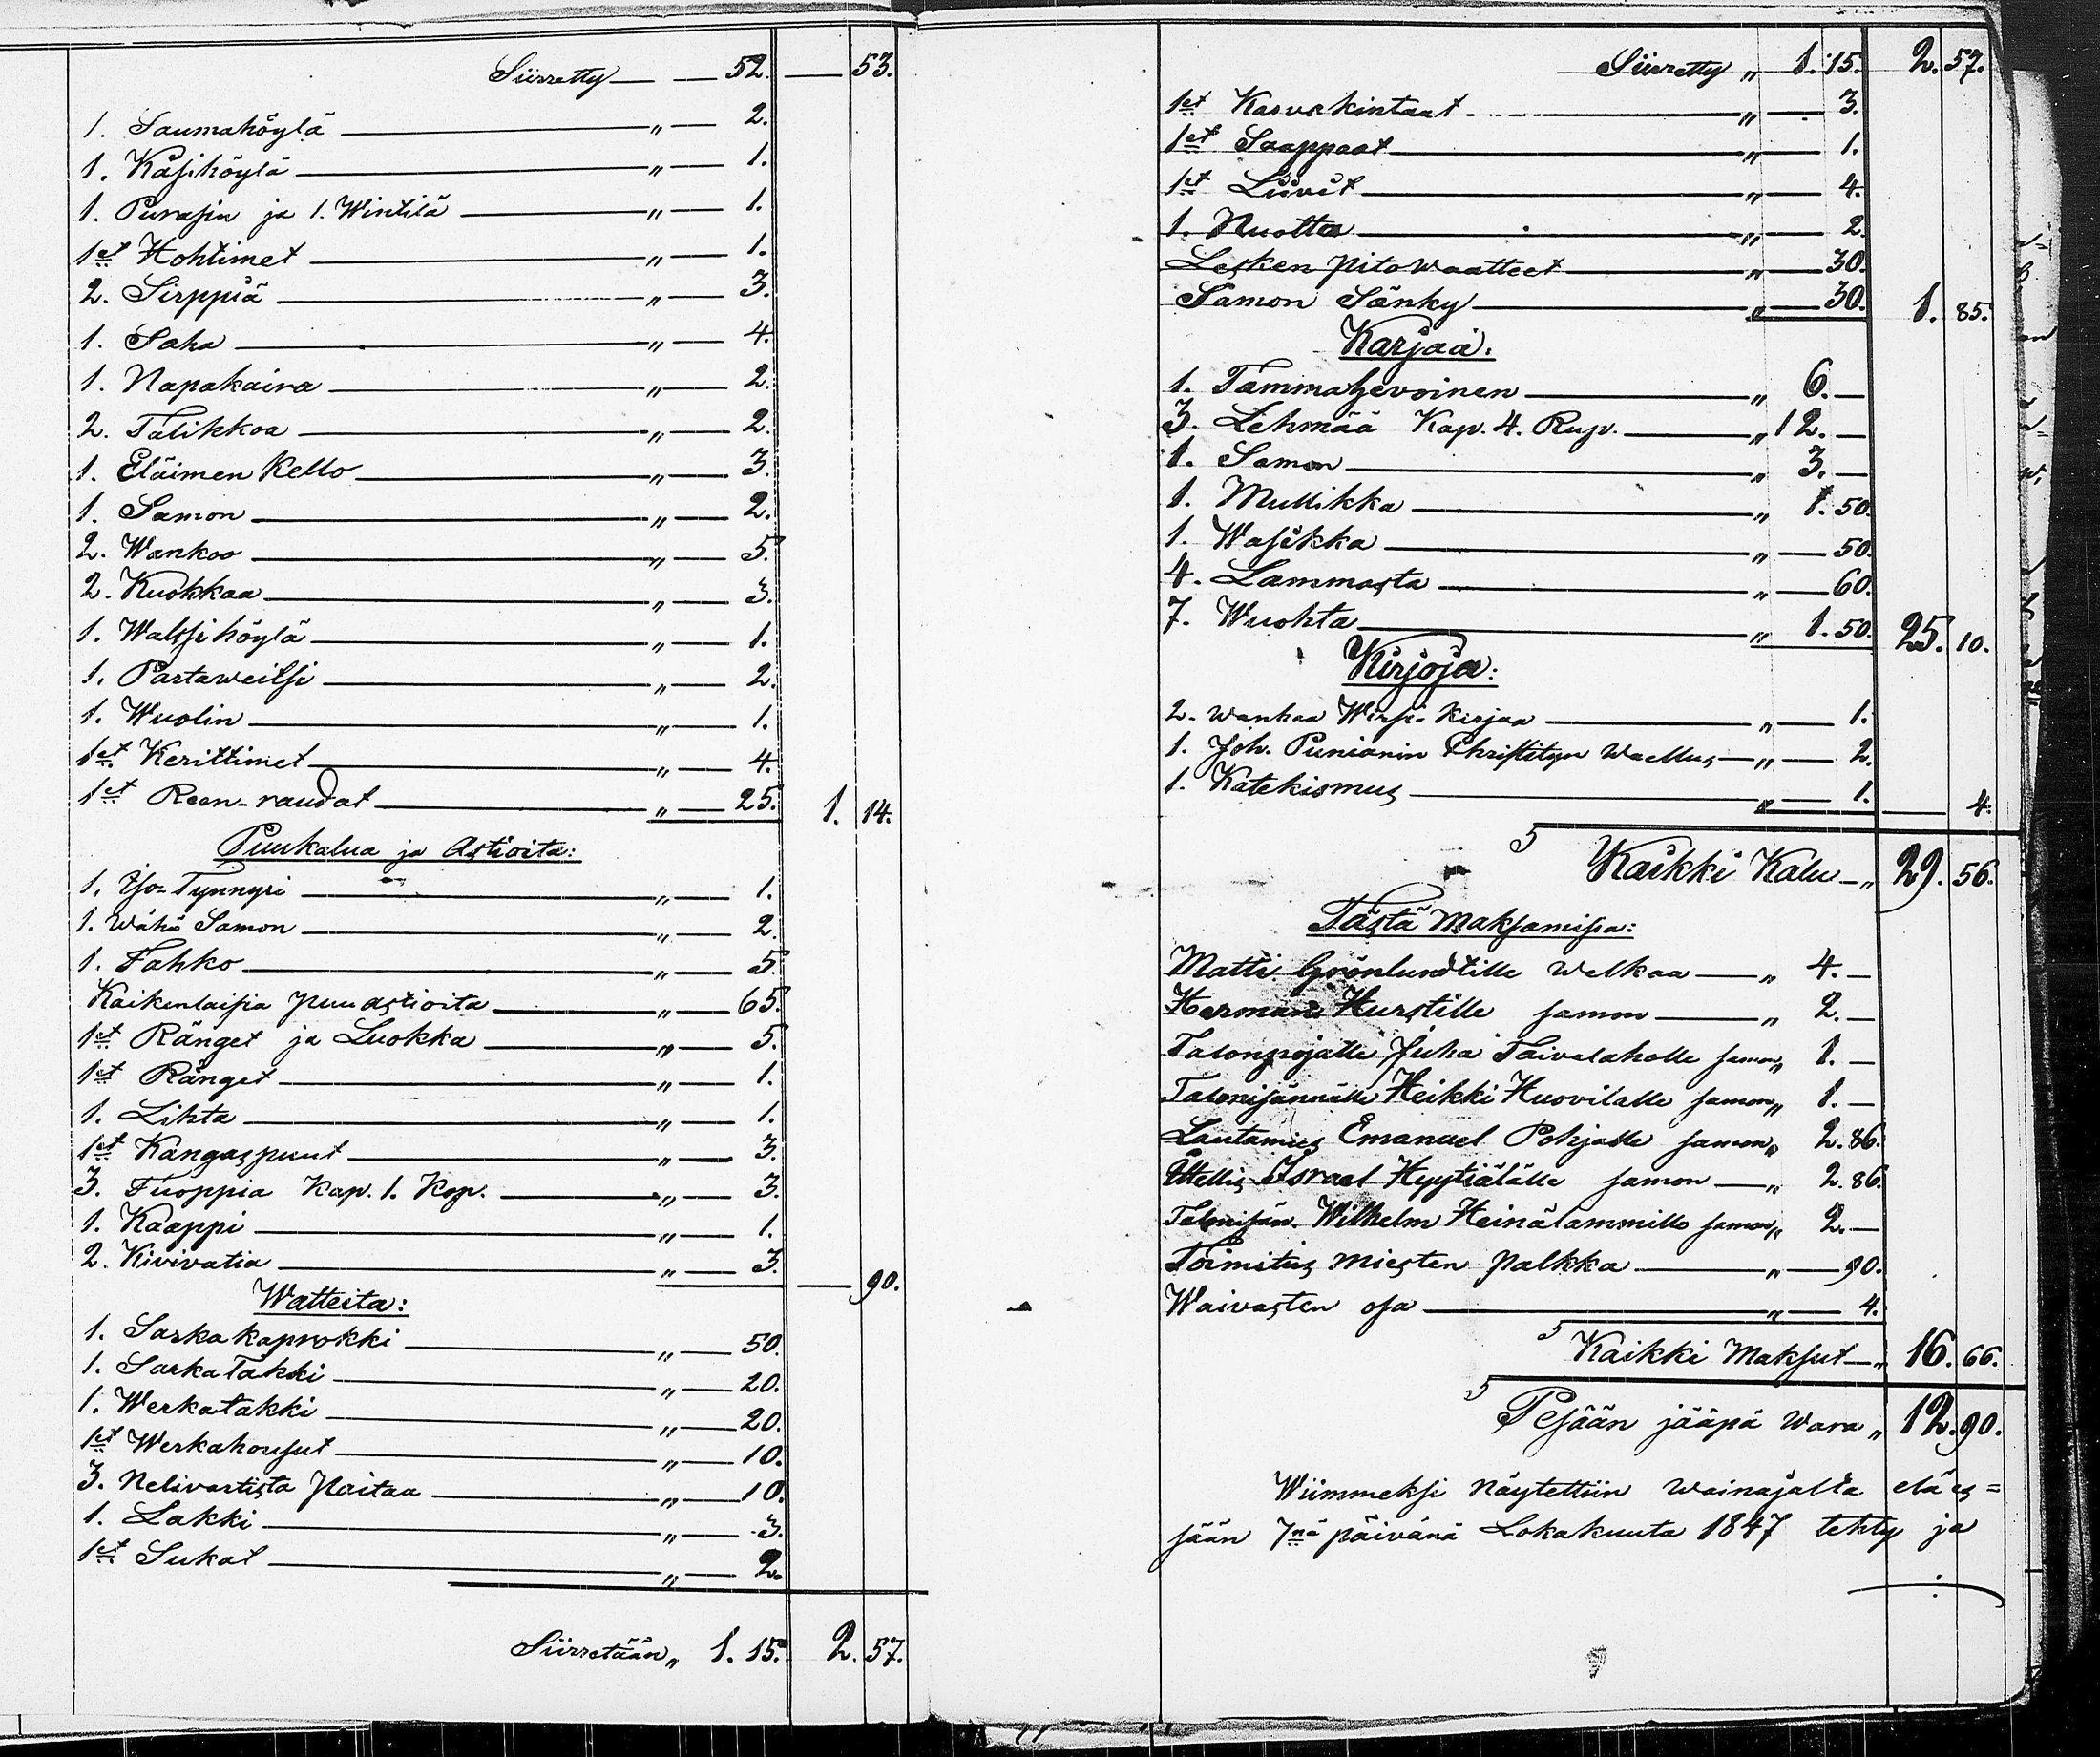 Siirretty — — 52. — 53.
1. Saumahöylä — " — 2.
1. Käsihöylä — " — 1.
1. Purasin ja 1. Wintilä — " — 1.
1et Hohtimet — " — 1.
2. Sirppiä — " — 3.
1. Saha — " — 4.
1. Napakaira — " — 2.
2. Talikkoa — " — 2.
1. Eläimen Kello — " — 3.
1. Samon — " — 2.
2. Wankoo — " — 5.
2. Kuokkaa — " — 3.
1. Walssi höylä — " — 1.
1. Partaweitsi — " — 2.
1. Wuolin — " — 1.
1et Kerittimet — " — 4.
1et Reen-raudat — " — 25. 1. 14.
Puukalua ja Astioita:
1. Iso-Tynnyri — " — 1.
1. Wähä Samon — " — 2.
1. Tahko — " — 5.
Kaikenlaisia puuastioita — " — 65.
1et Ränget ja Luokka — " — 5.
1et Ränget — " — 1.
1. Lihta — " — 1.
1et Kangaspuut — " — 3.
3. Tuoppia Kap. 1. Kop. — " — 3.
1. Kaappi — " — 1.
2. Kivivatia — " — 3. — 90.
Watteita:
1. Sarkakaprokki — " — 50.
1. Sarkatakki — " — 20.
1. Werkatakki — " — 20.
1et Werkahousut — " — 10.
3. Nelivartista paitaa — " — 10.
1. Lakki — " — 3.
1et Sukat — " — 2.
Siirretään " 1. 15. 2. 57.
Siirretty " 1. 15. 2. 57.
1et Karvakintaat — " — 3.
1et Saappaat — " — 1.
1et Liivit — " — 4.
1. Nuotta — " — 2.
Lesken pitowaatteet — " — 30.
Samon Sänky — " — 30. 1. 85.
Karjaa:
1. Tammahevoinen — " 6. —
3. Lehmää Kap. 4. Rup. — " 12. —
1. Samon — " 3. —
1. Mullikka — " 1. 50.
1. Wasikka — " — 50.
4. Lammasta — " — 60.
7. Wuohta — " 1. 50. 25. 10.
Kirjoja:
2. wanhaa Wirsi-Kirjaa — " — 1.
1. Joh. Punianin Christityn Waellus — " — 2.
1. Katekismus — " — 1. — 4.
Kaikki Kalu — " 29. 56.
Tästä Maksamisia:
Matti Grönlundtille Welkaa — " 4. —
Herman Hurstille samon — " 2. —
Talonpojalle Juha Taivalaholle samon " 1. —
Talonisännälle Heikki Huovilalle samon " 1. —
Lautamies Emanuel Pohjalle samon " 2. 86.
Israel Hyytiälälle samon — " 2. 86.
Talonisän. Wilhelm Heinälammille samon " 2. —
Toimitus miesten palkka — " — 90.
Waivasten osa — " — 4.
Kaikki Maksut — " 16. 66.
Pesään jääpä wara " 12. 90.
Wiimmeksi näytettiin wainajalta eläes=
sään 7nä päivänä Lokakuuta 1847 tehty ja